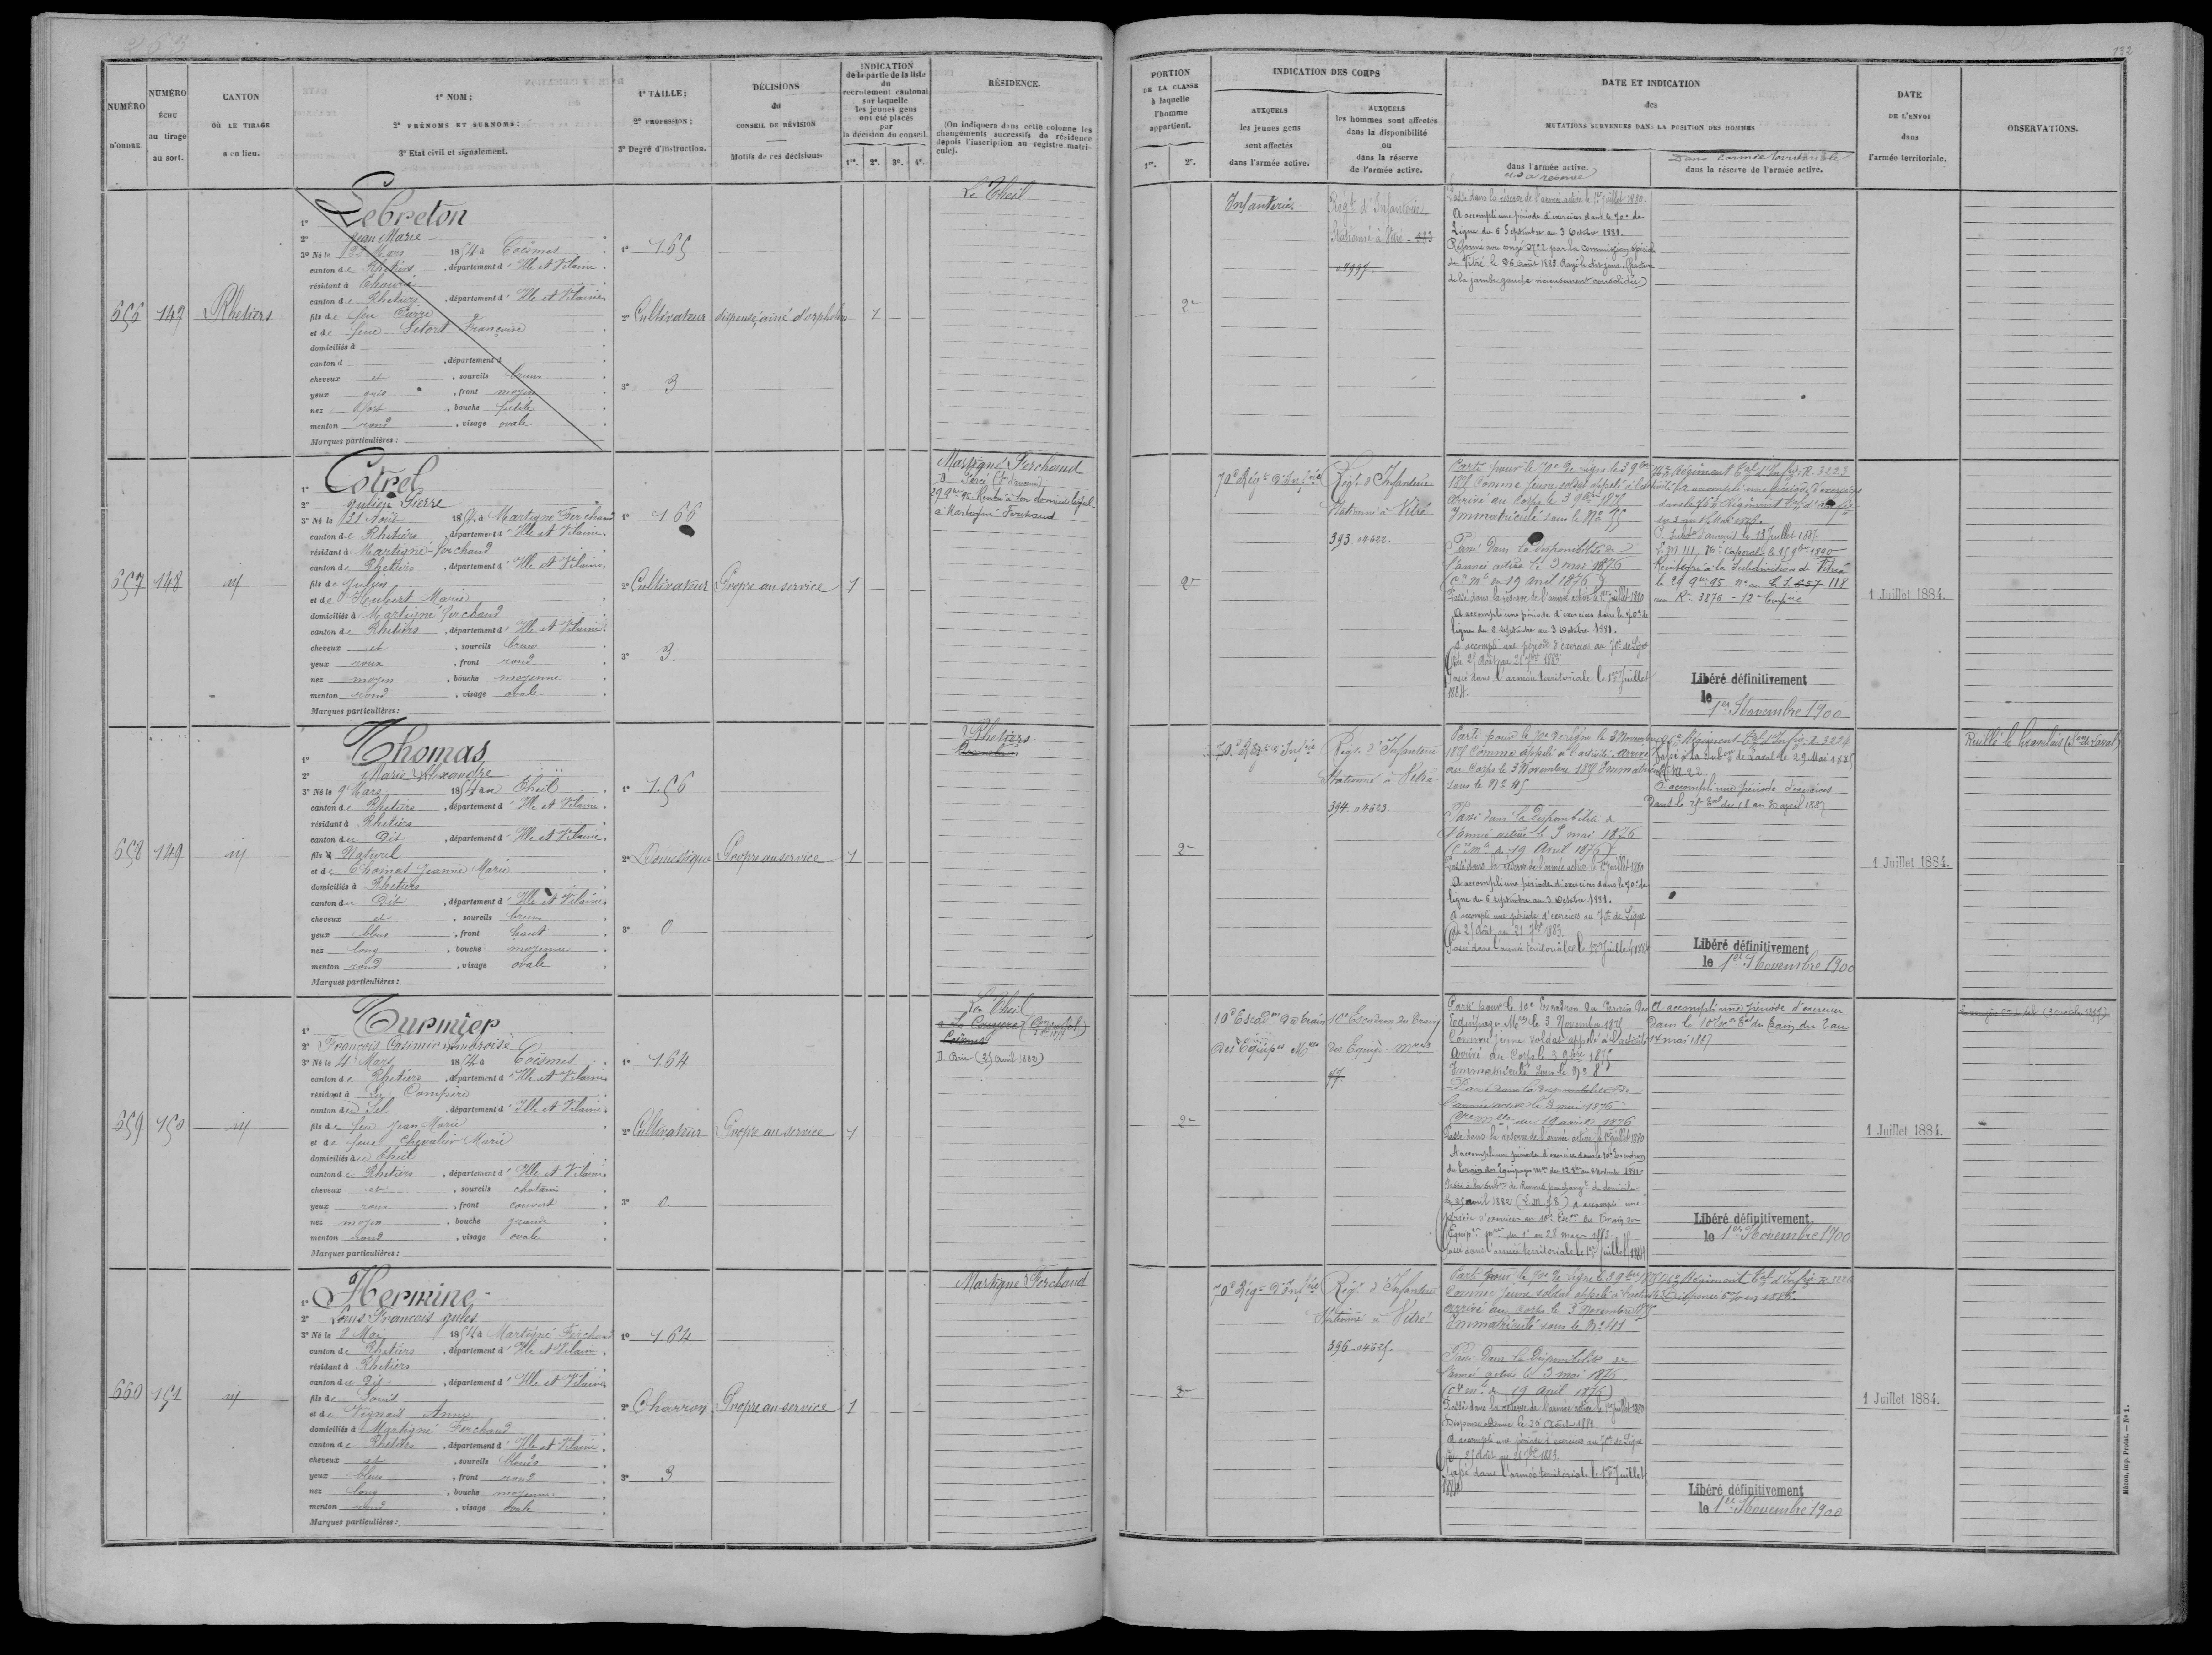 263
132
NUMÉRO D'ORDRE.
NUMÉRO ÉCHU au tirage au sort.
CANTON OÙ LE TIRAGE a eu lieu.
1° NOM;
2° PRÉNOMS ET SURNOMS;
3° Etat civil et signalement.
1° TAILLE;
2° PROFESSION;
3° Degré d'instruction.
DÉCISIONS du CONSEIL DE RÉVISION
Motifs de ces décisions.
INDICATION de la partie de la liste du recrutement cantonal sur laquelle les jeunes gens ont été placés par la décision du conseil.
1re. 2e. 3e. 4e.
RÉSIDENCE.
(On indiquera dans cette colonne les changements successifs de résidence depuis l'inscription au registre matricule).
PORTION DE LA CLASSE à laquelle l'homme appartient.
1re. 2e.
INDICATION DES CORPS
AUXQUELS les jeunes gens sont affectés dans l'armée active.
AUXQUELS les hommes sont affectés dans la disponibilité ou dans la réserve de l'armée active.
DATE ET INDICATION des MUTATIONS SURVENUES DANS LA POSITION DES HOMMES
dans l'armée active.
et la réserve
Dans l'armée territoriale
dans la réserve de l'armée active.
DATE DE L'ENVOI dans l'armée territoriale.
OBSERVATIONS.
656
147
Rhetiers
1° Lebreton
2° Jean Marie
3° Né le 22 Mars 1854 à Coësmes
canton de Rhetiers, département d'Ille et Vilaine
résidant à
canton de Rhetiers, département d'Ille et Vilaine
fils de feu Pierre
et de feue Letort Françoise
domiciliés à
canton d , département d
cheveux et , sourcils bruns
yeux gris , front moyen
nez fort , bouche petite
menton rond , visage ovale
Marques particulières :
1° 1.65
2° Cultivateur
3° 3
dispensé, ainé d'orphelins
1
Le Theil
2e
Infanterie
Régt d'Infanterie
Stationné à Vitré - 583
Passé dans la réserve de l'armée active le 1er juillet 1880.
A accompli une période d'exercices dans le 70e de
Ligne du 6 Septembre au 3 Octobre 1881.
Réformé avec congé No 2 par la commission spéciale
de Vitré le 26 août 1883. Rayé le dit jour. (fracture
de la jambe gauche vicieusement consolidée)
657
148
id
1° Cotrel
2° Julien Pierre
3° Né le 21 Aout 1854 à Martigné Ferchaud
canton de Rhetiers, département d'Ille et Vilaine
résidant à Martigné-Ferchaud
canton de Rhetiers, département d'Ille et Vilaine
fils de Julien
et de Heubert Marie
domiciliés à Martigné Ferchaud
canton de Rhetiers, département d'Ille et Vilaine
cheveux et , sourcils bruns
yeux roux , front rond
nez moyen , bouche moyenne
menton rond , visage ovale
Marques particulières :
1° 1.66
2° Cultivateur
3° 3
Propre au service
1
Martigné Ferchaud
29 9bre 95. Rentré à son domicile légal
à Martigné Ferchaud
2e
70e Régt d'Infrie
Régt d'Infanterie
Stationné à Vitré
393. 04622.
Parti pour le 70e de ligne le 3 9bre
1875 Comme jeune soldat appelé à l'activité
arrivé au Corps le 3 9bre 1875
Immatriculé sous le No 35
Passé dans la disponibilité de
l'armée active le 3 mai 1876
(Cre Mlle du 19 avril 1876)
Passé dans la réserve de l'armée active le 1er juillet 1880
A accompli une période d'exercices dans le 70e de
ligne du 6 Septembre au 3 Octobre 1881.
A accompli une période d'exercices au 70e de Ligne
du 25 Août au 21 7bre 1883.
Passé dans l'armée territoriale le 1er Juillet
1884.
76e Régiment Tal d'Infrie R. 3223
A accompli une période d'exercices
dans le 76e Régiment Tal d'Infrie
le 18 Juillet 1887
Caporal le 15 9bre 1890
Réintégré à la Subdivision de Vitré
le 29 9bre 95. 118
3876 - 12e Compie
Libéré définitivement
le 1er Novembre 1900
1 Juillet 1884.
658
149
id
1° Thomas
2° Marie Alexandre
3° Né le 9 Mars 1854 au Theil
canton de Rhetiers, département d'Ille et Vilaine
résidant à Rhetiers
canton du Dit, département d'Ille et Vilaine
fils Naturel
et de Thomas Jeanne Marie
domiciliés à Rhetiers
canton du Dit, département d'Ille et Vilaine
cheveux et , sourcils bruns
yeux bleus , front haut
nez long , bouche moyenne
menton rond , visage ovale
Marques particulières :
1° 1.56
2° Domestique
3° 0
Propre au service
1
Rhetiers
2e
70e Régt d'Infrie
Régt d'Infanterie
Stationné à Vitré
394. 04623.
Parti pour le 70e de ligne le 3 Novembre
1875 Comme appelé à l'activité. Arrivé
au Corps le 3 Novembre 1875 Immatriculé
sous le No 45
Passé dans la disponibilité de
l'armée active le 3 mai 1876
(Cre Mlle du 19 Avril 1876)
Passé dans la réserve de l'armée active le 1er juillet 1880
A accompli une période d'exercices dans le 70e de
ligne du 6 septembre au 3 Octobre 1881.
A accompli une période d'exercices au 70e de Ligne
du 25 Août au 21 7bre 1883.
Passé dans l'armée territoriale le 1er Juillet 1884
76e Régiment Tal d'Infrie R. 3224
Passé à la Subon de Laval le 29 Mai 1885
A accompli une période d'exercices
Dans le 25e Tal du 18 au 30 avril 1887
Libéré définitivement
le 1er Novembre 1900
1 Juillet 1884.
659
150
id
1° Turmier
2° François Casimir Ambroise
3° Né le 4 Mars 1854 à Coësmes
canton de Rhetiers, département d'Ille et Vilaine
résidant à
canton du Sel, département d'Ille et Vilaine
fils de feu Jean Marie
et de feue Chevalier Marie
domiciliés au Theil
canton de Rhetiers, département d'Ille et Vilaine
cheveux et , sourcils chatains
yeux roux , front couvert
nez moyen , bouche grande
menton rond , visage ovale
Marques particulières :
1° 1.64
2° Cultivateur
3° 0
Propre au service
1
Le Theil
Coësmes
D. Brie (25 avril 1882)
2e
10e Escadon du Train
des Equipes Mres
10e Escadron du Train
des Equip. Mres
Parti pour le 10e Escadron du Train des
Equipages Mres le 3 Novembre 1875
Comme jeune soldat appelé à l'activité
Arrivé au Corps le 3 9bre 1875
Immatriculé sous le No 8
Passé dans la disponibilité de
l'armée active le 3 mai 1876
Cre Mlle du 19 avril 1876
Passé dans la réserve de l'armée active le 1er juillet 1880
A accompli une période d'exercice dans le 10e Escadron
du Train des Equipages Mres
Passé à la Subon de Rennes par changt de domicile
le 25 avril 1882 A accompli une
période d'exercices au 10e Escon du Train des
Equipes Mres du 1er au 28 mars 1883.
Passé dans l'armée territoriale le 1er Juillet 1884
A accompli une période d'exercices
Dans le 10e Escon Tal du train du 2 au
14 mai 1887
Libéré définitivement
le 1er Novembre 1900
1 Juillet 1884.
660
151
id
1° Hermine
2° Louis François Jules
3° Né le 2 Mai 1854 à Martigné Ferchaud
canton de Rhetiers, département d'Ille et Vilaine
résidant à Rhetiers
canton du Dit, département d'Ille et Vilaine
fils de Louis
et de Vignais Anne
domiciliés à Martigné Ferchaud
canton de Rhetiers, département d'Ille et Vilaine
cheveux et , sourcils blonds
yeux bleus , front rond
nez long , bouche moyenne
menton rond , visage ovale
Marques particulières :
1° 1.62
2° Charron
3° 3
Propre au service
1
Martigné Ferchaud
2e
70e Régt d'Infrie
Régt d'Infanterie
Stationné à Vitré
396. 04625.
Parti pour le 70e de ligne le 3 9bre 1875
Comme jeune soldat appelé à l'activité
arrivé au Corps le 3 Novembre 1875
Immatriculé sous le No 41
Passé dans la disponibilité de
l'armée active le 3 mai 1876
(Cre Mlle du 19 Avril 1876)
Passé dans la réserve de l'armée active le 1er juillet 1880
le 25 Août 1881
A accompli une période d'exercices au 70e de Ligne
du 25 Août au 21 7bre 1883
Passé dans l'armée territoriale le 1er Juillet
1884
76e Régiment Tal d'Infrie
Libéré définitivement
le 1er Novembre 1900
1 Juillet 1884.
Mâcon, imp. Protat. — No 1.